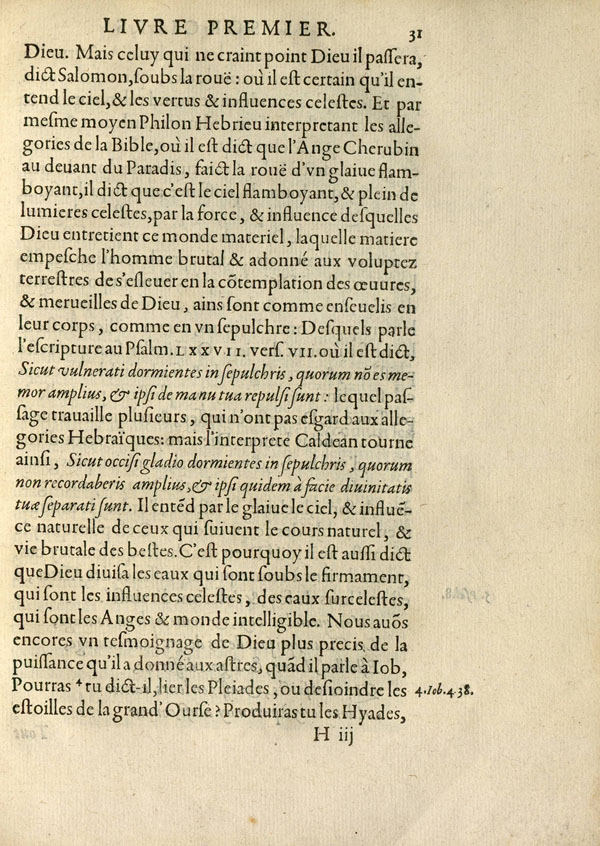 LIVRE PREMIER. 31
Dieu. Mais celuy qui ne craint point Dieu il passera,
dict Salomon, soubs la rouë: où il est certain qu'il en-
tend le ciel, & les vertus & influences celestes. Et par
mesme moyen Philon Hebrieu interpretant les alle-
gories de la Bible, où il est dict que l'Ange Cherubin
au deuant du Paradis, faict la rouë d'vn glaiue flam-
boyant, il dict que c'est le ciel flamboyant, & plein de
lumieres celestes, par la force, & influence desquelles
Dieu entretient ce monde materiel, laquelle matiere
empesche l'homme brutal & adonné aux voluptez
terrestres de s'esleuer en la cõtemplation des œuures,
& merueilles de Dieu, ains sont comme enseuelis en
leur corps, comme en vn sepulchre: Desquels parle
l'escripture au Psalm. LXXVII. vers. VII. où il est dict,
Sicut vulnerati dormientes in sepulchris, quorum nõ es me-
mor amplius, & ipsi de manu tua repulsi sunt: lequel pas-
sage trauaille plusieurs, qui n'ont pas esgard aux alle-
gories Hebraïques: mais l'interprete Caldean tourne
ainsi, Sicut occisi gladio dormientes in sepulchris, quorum
non recordaberis amplius, & ipsi quidem à facie diuinitatis
tuæ separati sunt. Il entẽd par le glaiue le ciel, & influẽ-
ce naturelle de ceux qui suiuent le cours naturel, &
vie brutale des bestes. C'est pourquoy il est aussi dict
que Dieu diuisa les eaux qui sont soubs le firmament,
qui sont les influences celestes, des eaux surcelestes,
qui sont les Anges & monde intelligible. Nous auõs
encores vn tesmoignage de Dieu plus precis de la
puissance qu'il a donné aux astres, quãd il parle à Iob,
Pourras 4 tu dict-il, lier les Pleiades, ou desioindre les 4. Iob. 4. 38.
estoilles de la grand' Ourse? Produiras tu les Hyades,
H iij